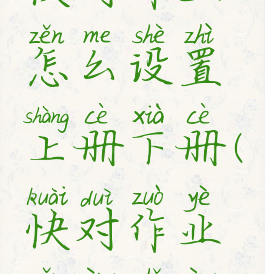 zěn me shè zhì
怎么设置
shàng cè xià cè
上册下册(
kuài duì zuò yè
快对作业